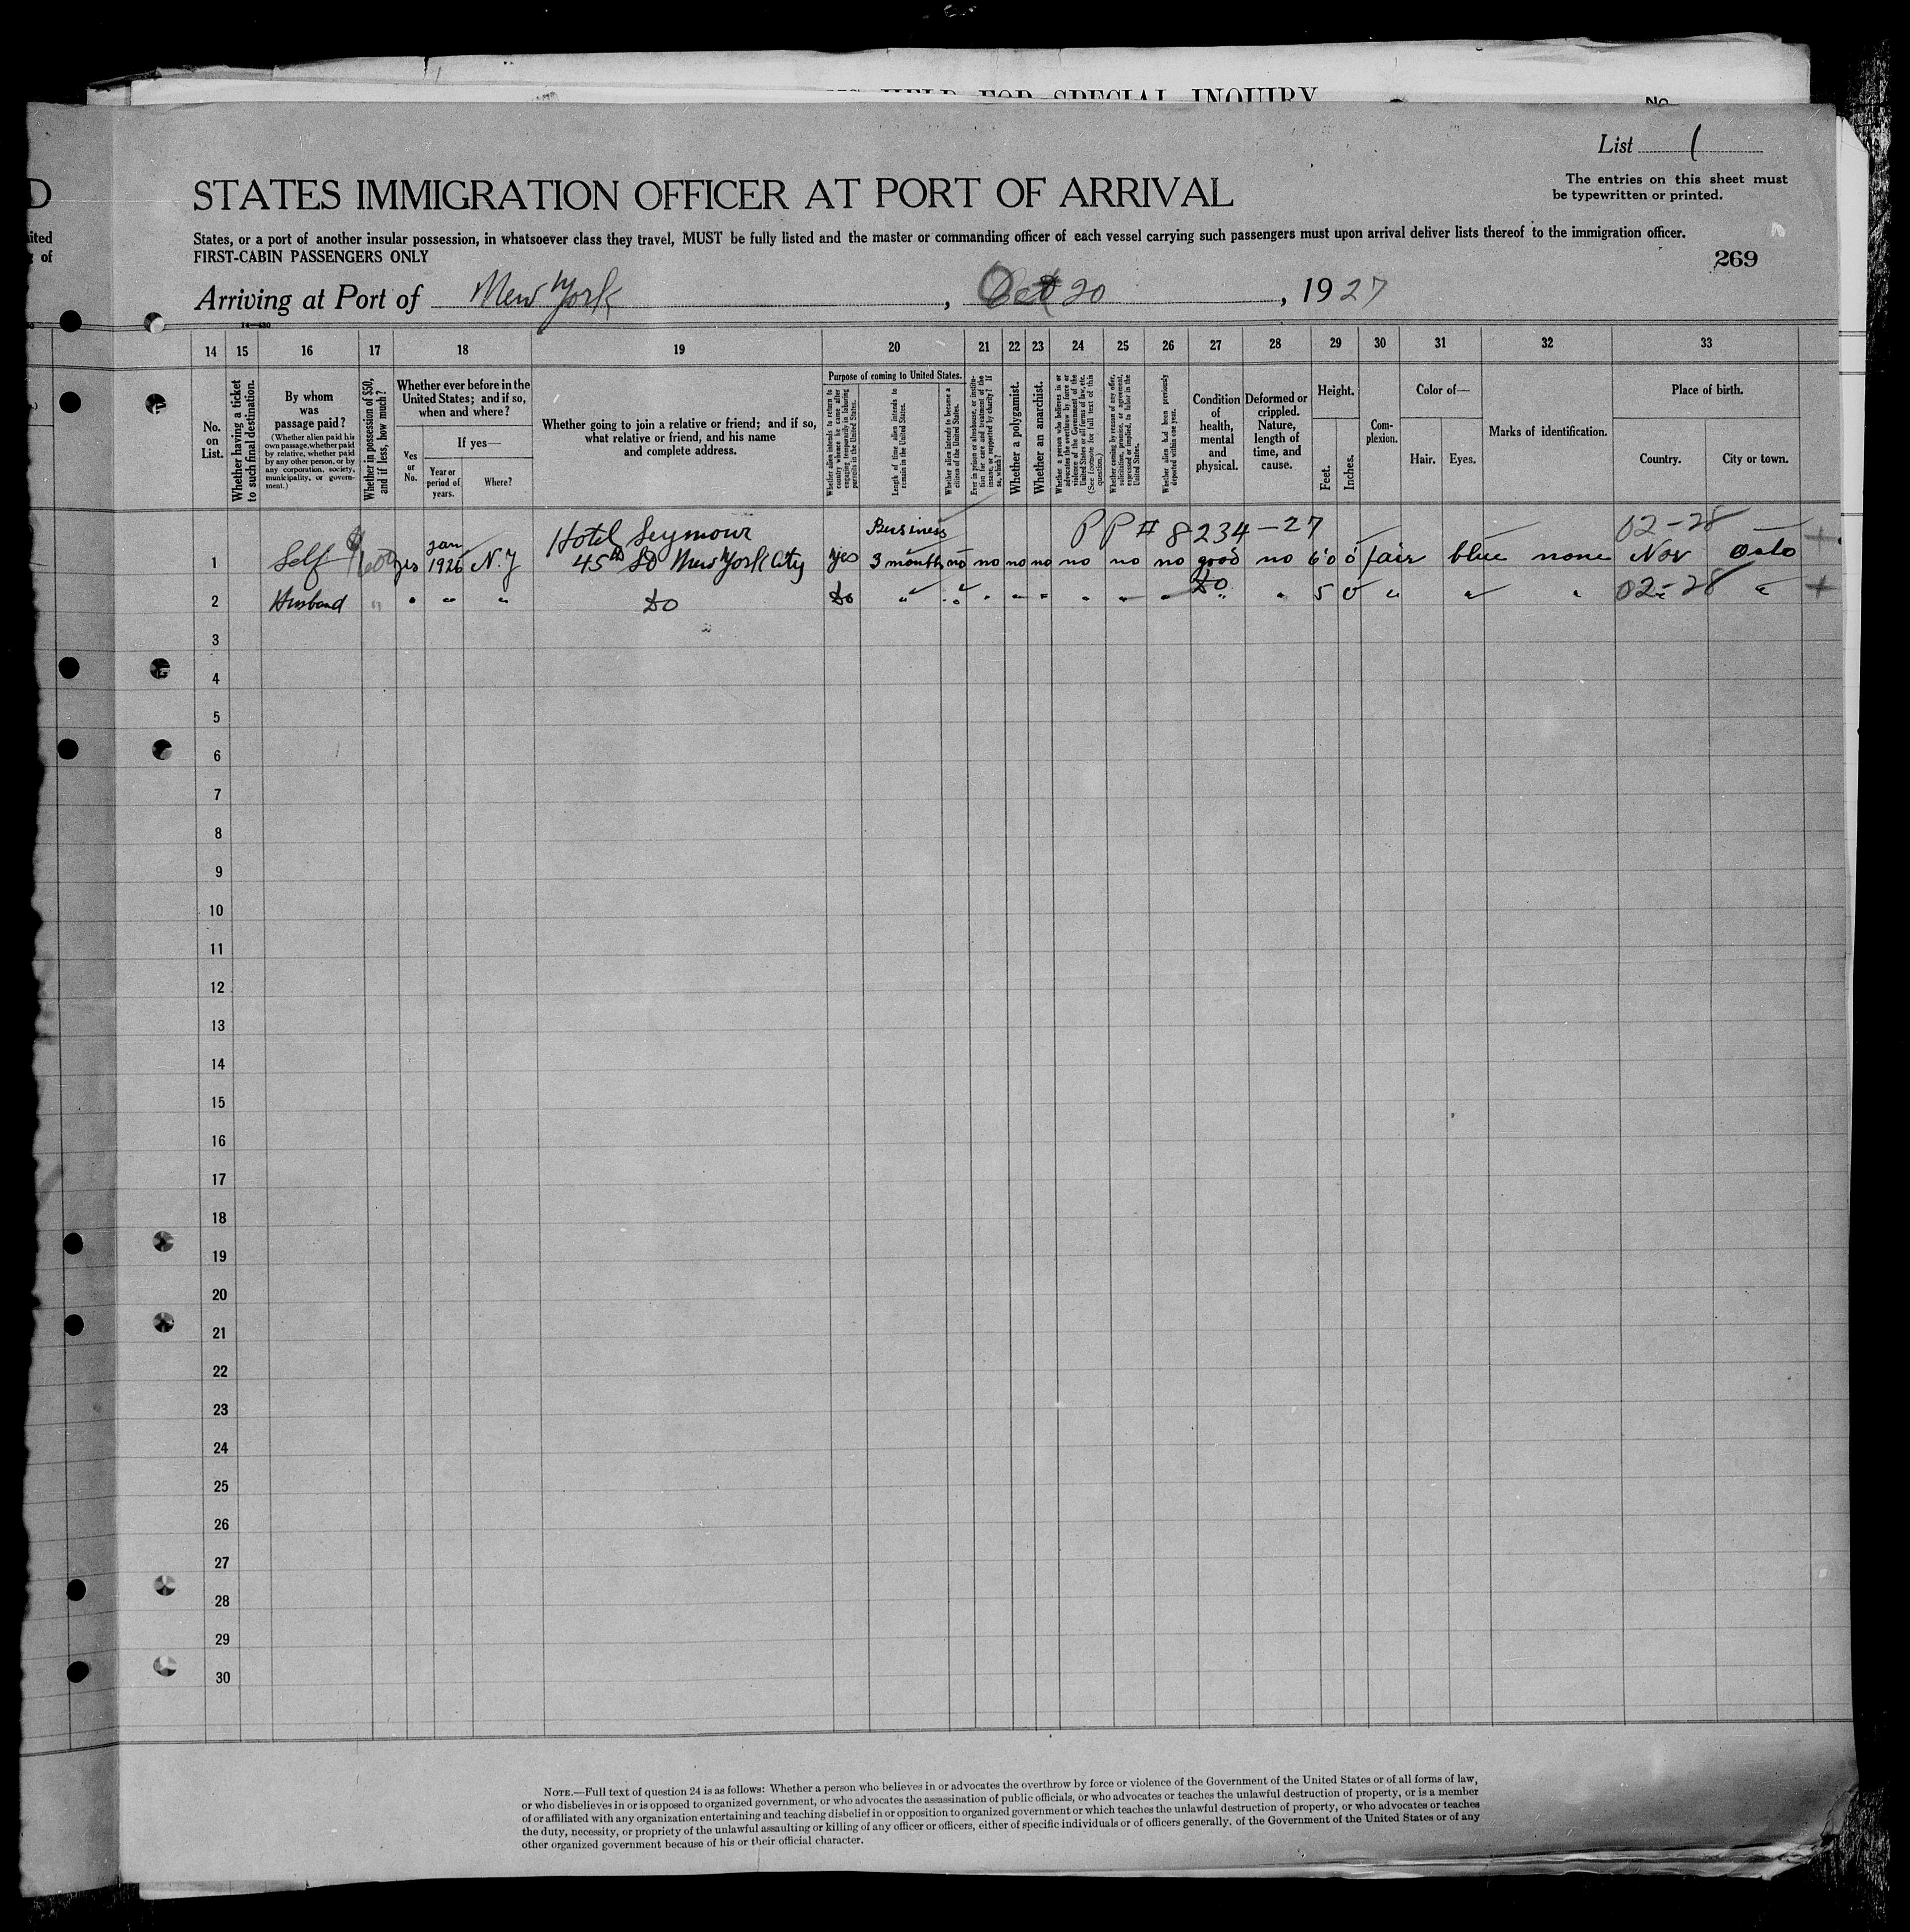 HELD FOR SPECIAL INQUIRY
No.
List 1
The entries on this sheet must
be typewritten or printed.
D
STATES IMMIGRATION OFFICER AT PORT OF ARRIVAL
ited
of
States, or a port of another insular possession, in whatsoever class they travel, MUST be fully listed and the master or commanding officer of each vessel carrying such passengers must upon arrival deliver lists thereof to the immigration officer.
FIRST-CABIN PASSENGERS ONLY
269
Arriving at Port of New York, Oct 20, 1927
14—430
14 15 16 17 18 19 20 21 22 23 24 25 26 27 28 29 30 31 32 33
No.
on
List.
Whether having a ticket
to such final destination.
By whom
was
passage paid?
(Whether alien paid his
own passage, whether paid
by relative, whether paid
by any other person, or by
any corporation, society,
municipality, or govern-
ment.)
Whether in possession of $50,
and if less, how much?
Whether ever before in the
United States; and if so,
when and where?
Yes
or
No.
If yes—
Year or
period of
years.
Where?
Whether going to join a relative or friend; and if so,
what relative or friend, and his name
and complete address.
Purpose of coming to United States.
Whether alien intends to return to
country whence he came after
engaging temporarily in laboring
pursuits in the United States.
Length of time alien intends to
remain in the United States.
Whether alien intends to become a
citizen of the United States.
Ever in prison or almshouse, or institu-
tion for care and treatment of the
insane, or supported by charity? If
so, which?
Whether a polygamist.
Whether an anarchist.
Whether a person who believes in or
advocates the overthrow by force or
violence of the Government of the
United States or all forms of law, etc.
(See footnote for full text of this
question.)
Whether coming by reason of any offer,
solicitation, promise, or agreement,
expressed or implied, to labor in the
United States.
Whether alien had been previously
deported within one year.
Condition
of
health,
mental
and
physical.
Deformed or
crippled.
Nature,
length of
time, and
cause.
Height.
Feet.
Inches.
Com-
plexion.
Color of—
Hair.
Eyes.
Marks of identification.
Place of birth.
Country.
City or town.
Hotel Seymour Business PP # 8234 – 27 02 – 28
1 Self yes Jan 1926 N.Y 45th St New York City yes 3 months no no no no no no no good no 6 0 fair blue none Nor Oslo +
2 Husband " " " " Do Do " " " " " " " " Do " 5 " " " 02 – 28 " +
3
4
5
6
7
8
9
10
11
12
13
14
15
16
17
18
19
20
21
22
23
24
25
26
27
28
29
30
NOTE.—Full text of question 24 is as follows: Whether a person who believes in or advocates the overthrow by force or violence of the Government of the United States or of all forms of law,
or who disbelieves in or is opposed to organized government, or who advocates the assassination of public officials, or who advocates or teaches the unlawful destruction of property, or is a member
of or affiliated with any organization entertaining and teaching disbelief in or opposition to organized government or which teaches the unlawful destruction of property, or who advocates or teaches
the duty, necessity, or propriety of the unlawful assaulting or killing of any officer or officers, either of specific individuals or of officers generally. of the Government of the United States or of any
other organized government because of his or their official character.